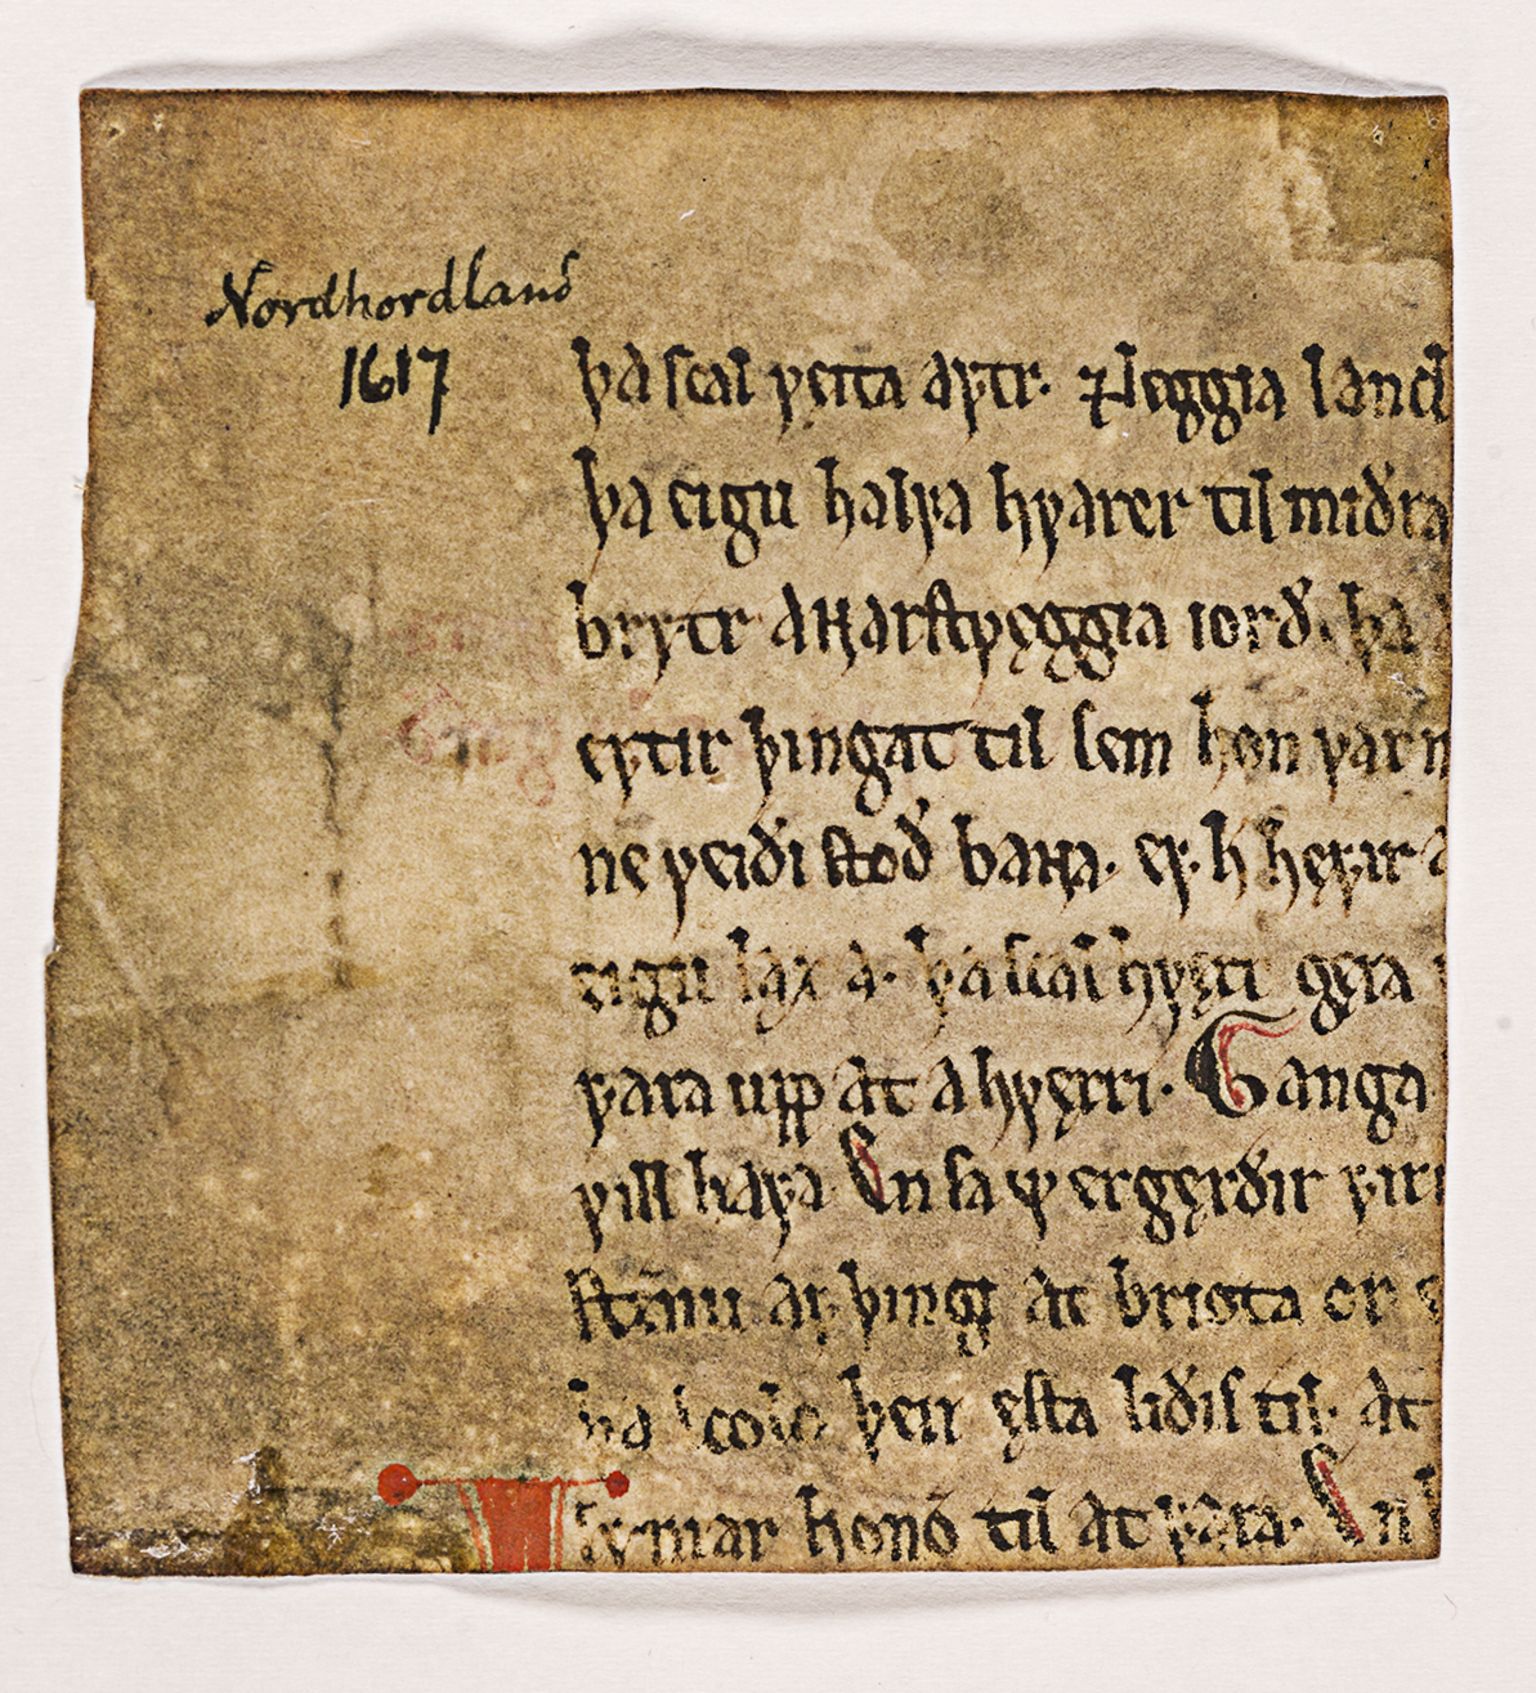 Nordhordland
1617
þa scal ꝩęita aꝼtr. ⁊ leggia land
þa eigu halꝼa hꝩarer til miðra
brytr aɴarſtꝩęggia iorð. þa
eꝼtir þingat til ſem hon ꝩar
ne ꝩeiði ſtoð baɴa. eꝼ h heꝼir
eigu lax a. þa ſcal hꝩęri gęra
ꝼara upp at a hꝩęrri. Ganga
ꝩill haꝼa En ſa ꝩ er gęrðir ꝼir
ar þingi at briota er
þa þeir ęſta liðiſ til. At
honō til at ꝼara. En